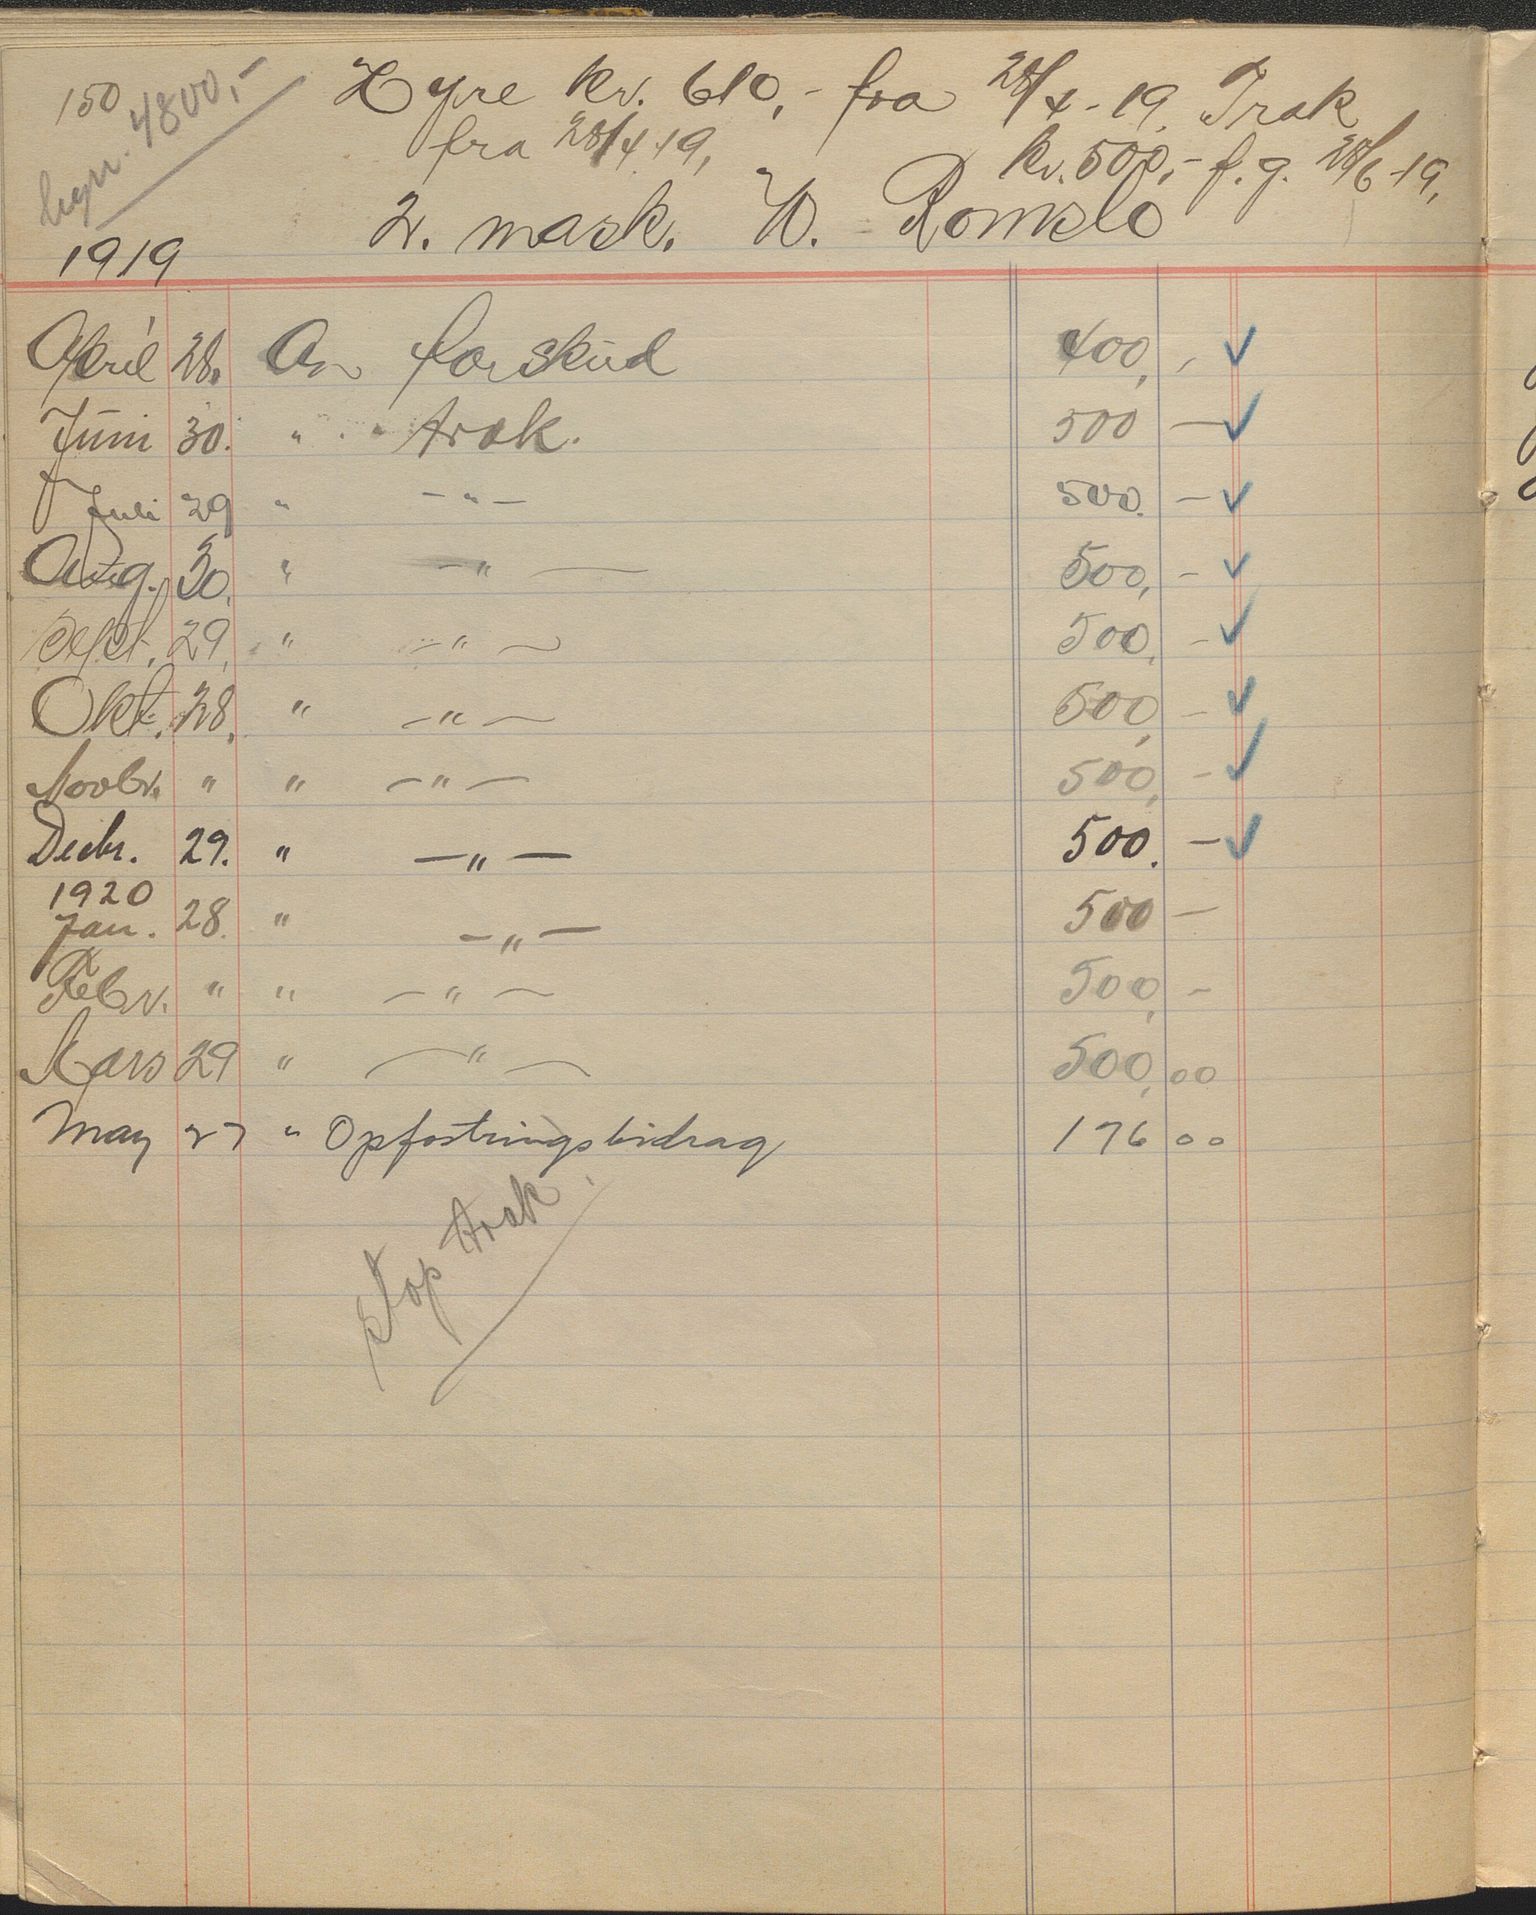 150
4800,-
Hyre kr. 610,- fra 28/4-19. Trak
fra 28/4 19, kr. 500,- f. g. 28/6-19,
2. mask. W. Romslo
1919
April 28. An forskud 400, -
Juni 30. " trak. 500 -
Juli 29 " - " - 500. -
Aug. 30. " - " - 500, -
Sept. 29, " - " - 500, -
Okt. 28, " - " - 500, -
Novbr. " " - " - 500, -
Decbr. 29. " - " - 500. -
1920
Jan. 28. " - " - 500 -
Febr. " " - " - 500, -
Mars 29 " - " - 500,00
May 27 " Opfostringsbidrag 176 00
Stop trak.